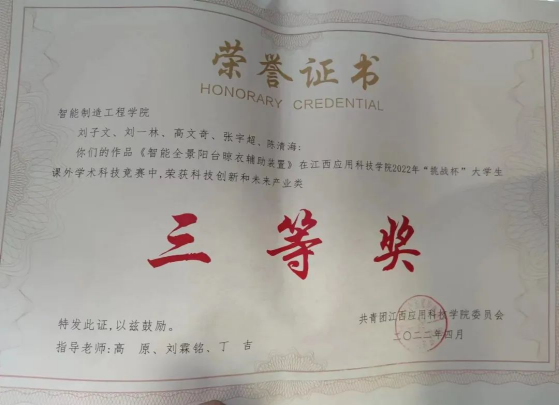 荣誉证书
HONORARY CREDENTIAL
智能制造工程学院
刘子文、刘一林、高文奇、张宇超、陈清海:
你们的作品《智能全景阳台晾衣辅助装置》在江西应用科技学院2022年“挑战杯”大学生
课外学术科技竞赛中,荣获科技创新和未来产业类
三等奖
特发此证,以兹鼓励。
共青团江西应用科技学院委员会
二〇二二年四月
指导老师:高 原、刘霖铭、丁 吉